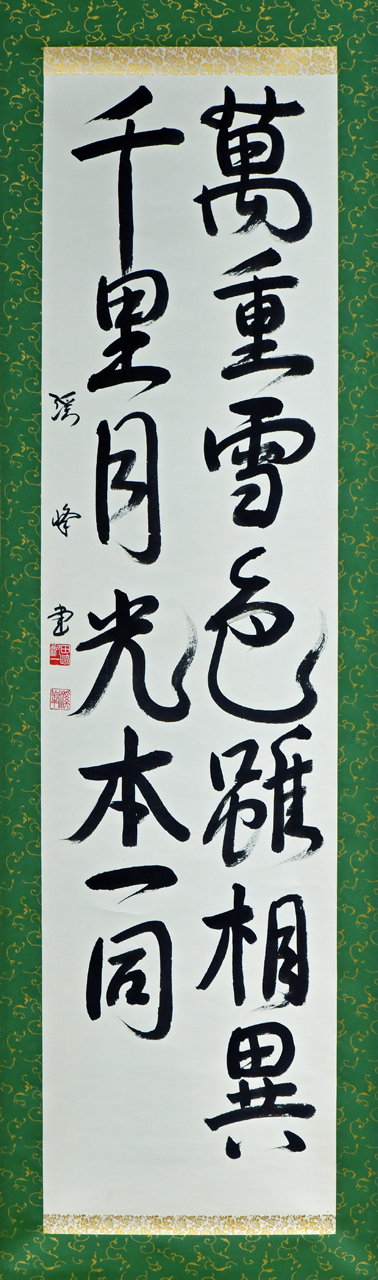 萬重雪色雖相異
千里月光本一同
溪峰書